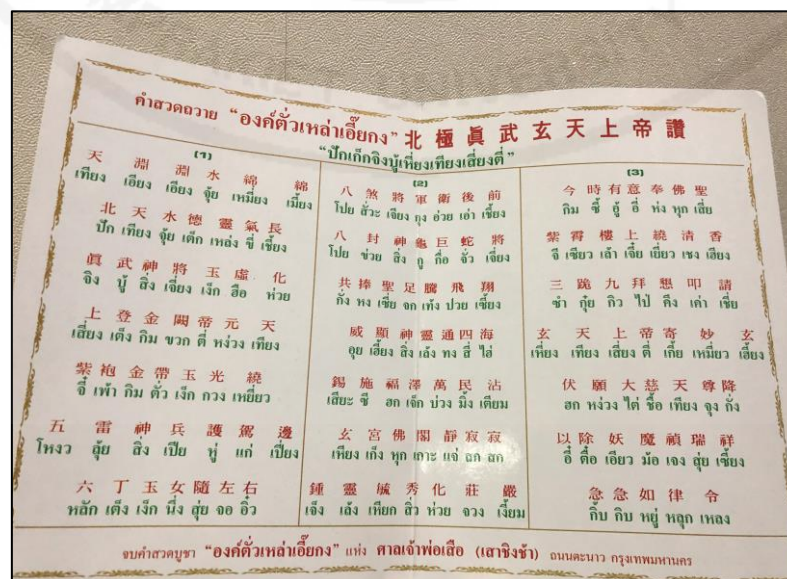 คำสวดถวาย “องค์ตั่วเหล่าเอี๊ยกง” 北極眞武玄天上帝讚
“ปักเก็กจิงบู้เหี่ยงเทียงเสี่ยงตี่”
(1)
天淵淵水綿綿
เทียง เอียง เอียง จุ้ย เหมี่ยง เมี้ยง
北天水德靈氣長
ปัก เทียง จุ้ย เต็ก เหล่ง ขี่ เชี้ยง
眞武神將玉虛化
จิง บู้ สิ่ง เจี่ยง เง็ก ฮือ ห่วย
上登金闕帝元天
เสี่ยง เต็ง กิม ขวก ตี่ หง่วง เทียง
紫袍金帶玉光繞
จี้ เพ้า กิม ตั่ว เง็ก กวง เหยี่ยว
五雷神兵護駕邊
โหงว ลุ้ย สิ่ง เปีย หู่ แก่ เปี่ยง
六丁玉女隨左右
หลัก เต็ง เง็ก นึ่ง สุ่ย จอ อิ๋ว
(2)
八煞將軍衛後前
โปย สั่วะ เจี่ยง กุง อ่วย เอ่า เชี้ยง
八封神龜巨蛇將
โปย ข่วย สิ่ง กู กื่อ จั่ว เจี่ยง
共捧聖足騰飛翔
กั่ง หง เซี่ย จก เท้ง ปวย เชี้ยง
威顯神靈通四海
อุย เฮี้ยง สิ่ง เล้ง ทง สี่ ไฮ่
錫施福澤萬民沾
เสียะ ซี ฮก เจ็ก บ่วง มิ้ง เตียม
玄宮佛閣靜寂寂
เหียง เก็ง หุก เกาะ แจ่ ลก สก
鍾靈毓秀化莊嚴
เจ็ง เล้ง เหียก สิ่ว ห่วย จวง เงี้ยม
(3)
今時有意奉佛聖
กิม ซี้ อู้ อี่ ห่ง หุก เสี่ย
紫霄樓上繞清香
จี เซียว เล้า เจี๋ย เยี่ยว เชง เฮียง
三跪九拜懇叩請
ซำ กุ๋ย กิว ไป่ คึง เค่า เชี่ย
玄天上帝寄妙玄
เหี่ยง เทียง เสี่ยง ตี่ เกี้ย เหมี่ยว เฮี้ยง
伏願大慈天尊降
ฮก หง่วง ไต่ ชื้อ เทียง จุง กั่ง
以除妖魔禎瑞祥
อี๋ ตื๊อ เอียว ม้อ เจง สุ่ย เชี้ยง
急急如律令
กิ๊บ กิบ หยู่ หลุก เหลง
จบคำสวดบูชา “องค์ตั่วเหล่าเอี๊ยกง” แห่ง ศาลเจ้าพ่อเสือ (เสาชิงช้า) ถนนตะนาว กรุงเทพมหานคร